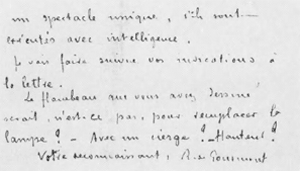 un spectacle unique, s'ils sont
orientés avec intelligence.
Je vais faire suivre vos indications à
la lettre.
Le flambeau que vous avez dessiné
serait, n'est-ce pas, pour remplacer la
lampe ? - Avec un cierge ? - Hauteur ?
Votre reconnaissant, R. de Gourmont